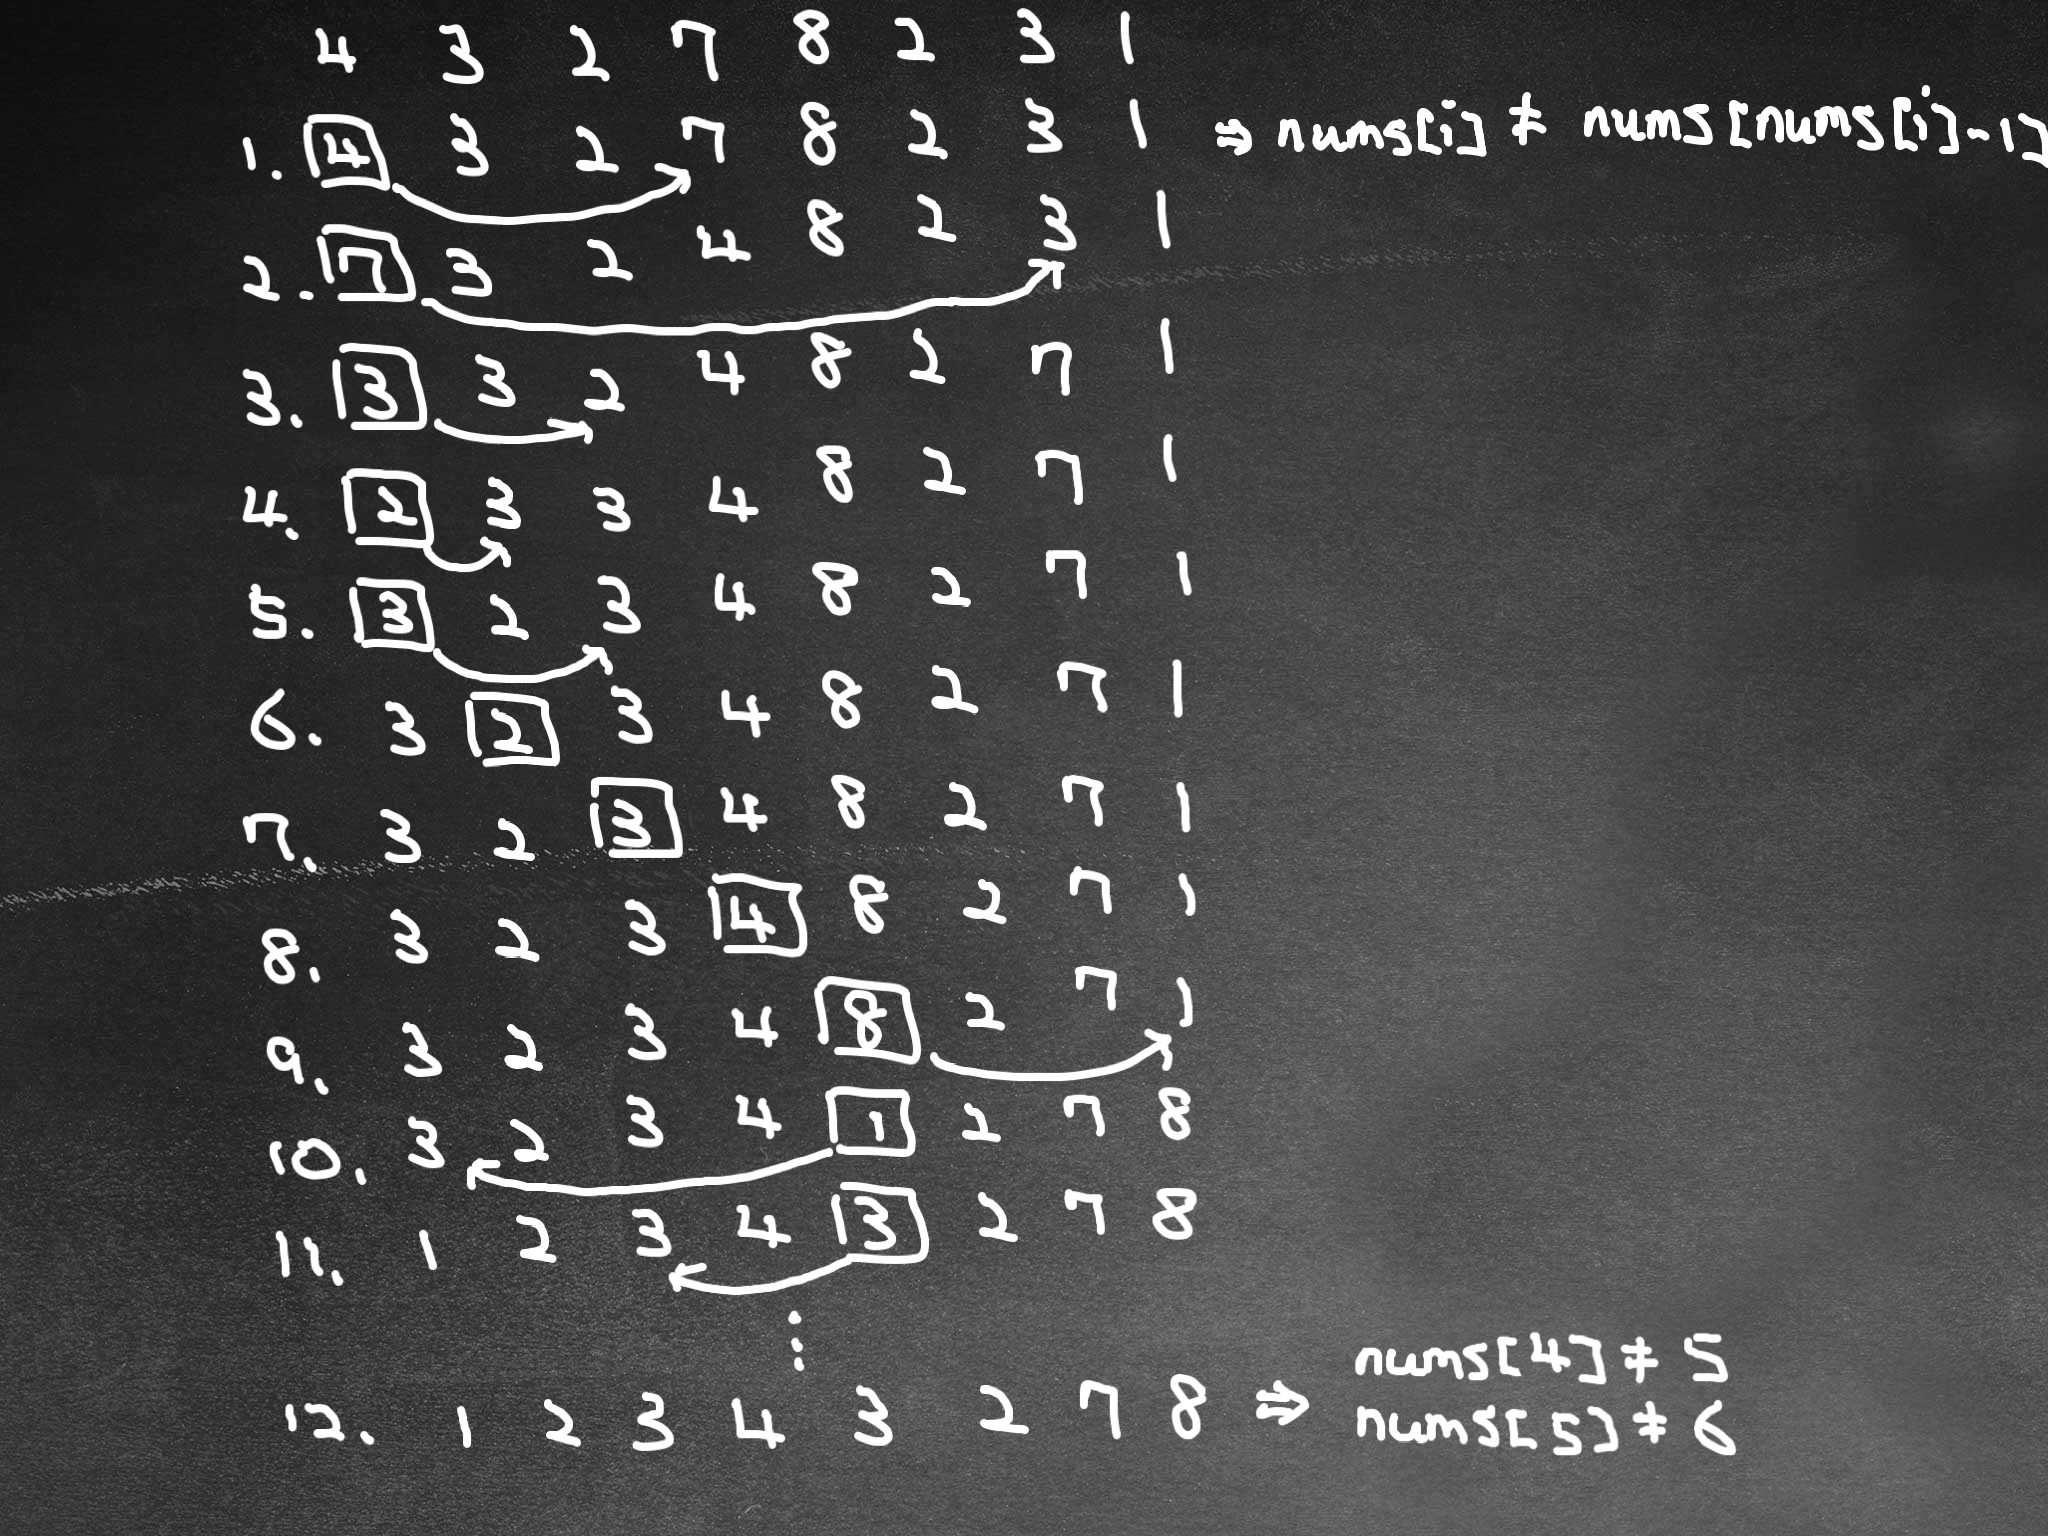 4 3 2 7 8 2 3 1
1. 4 3 2 7 8 2 3 1 ⇒ nums[i] ≠ nums[nums[i]-1]
2. 7 3 2 4 8 2 3 1
3. 3 3 2 4 8 2 7 1
4. 2 3 3 4 8 2 7 1
5. 3 2 3 4 8 2 7 1
6. 3 2 3 4 8 2 7 1
7. 3 2 3 4 8 2 7 1
8. 3 2 3 4 8 2 7 1
9. 3 2 3 4 8 2 7 1
10. 3 2 3 4 1 2 7 8
11. 1 2 3 4 3 2 7 8
⋮
12. 1 2 3 4 3 2 7 8 ⇒ nums[4] ≠ 5
nums[5] ≠ 6